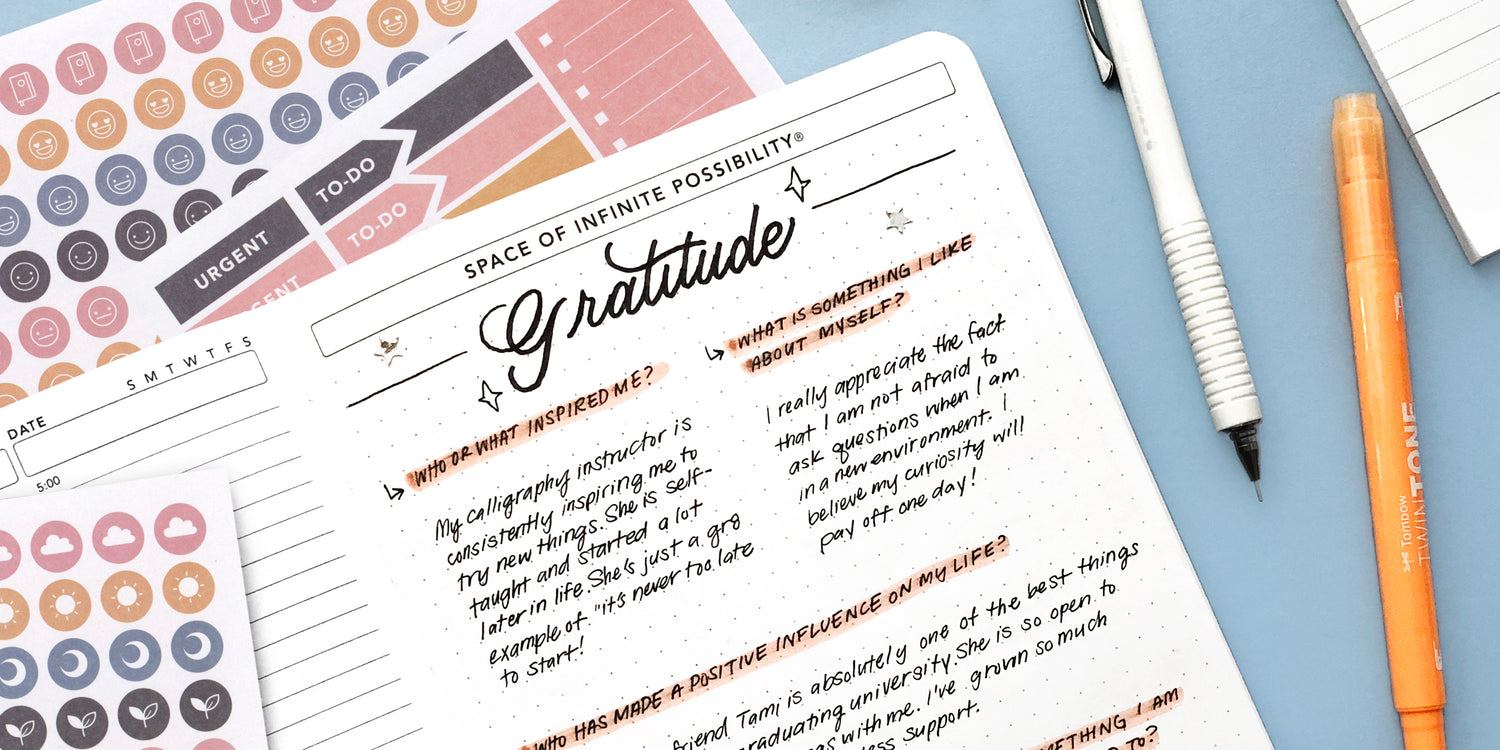 URGENT
TO-DO
TO-DO
S M T W T F S
DATE
5:00
SPACE OF INFINITE POSSIBILITY®
Gratitude
WHO OR WHAT INSPIRED ME?
My calligraphy instructor is
consistently inspiring me to
try new things. She is self-
taught and started a lot
later in life. She's just a gr8
example of "it's never too late
to start!
WHAT IS SOMETHING I LIKE
ABOUT MYSELF?
I really appreciate the fact
that I am not afraid to
ask questions when I am
in a new environment. I
believe my curiosity will
pay off one day!
WHO HAS MADE A POSITIVE INFLUENCE ON MY LIFE?
friend Tami is absolutely one of the best things
graduating university. She is so open to
with me. I've grown so much
support.
I AM
TO?
Tombow
TWINTONE